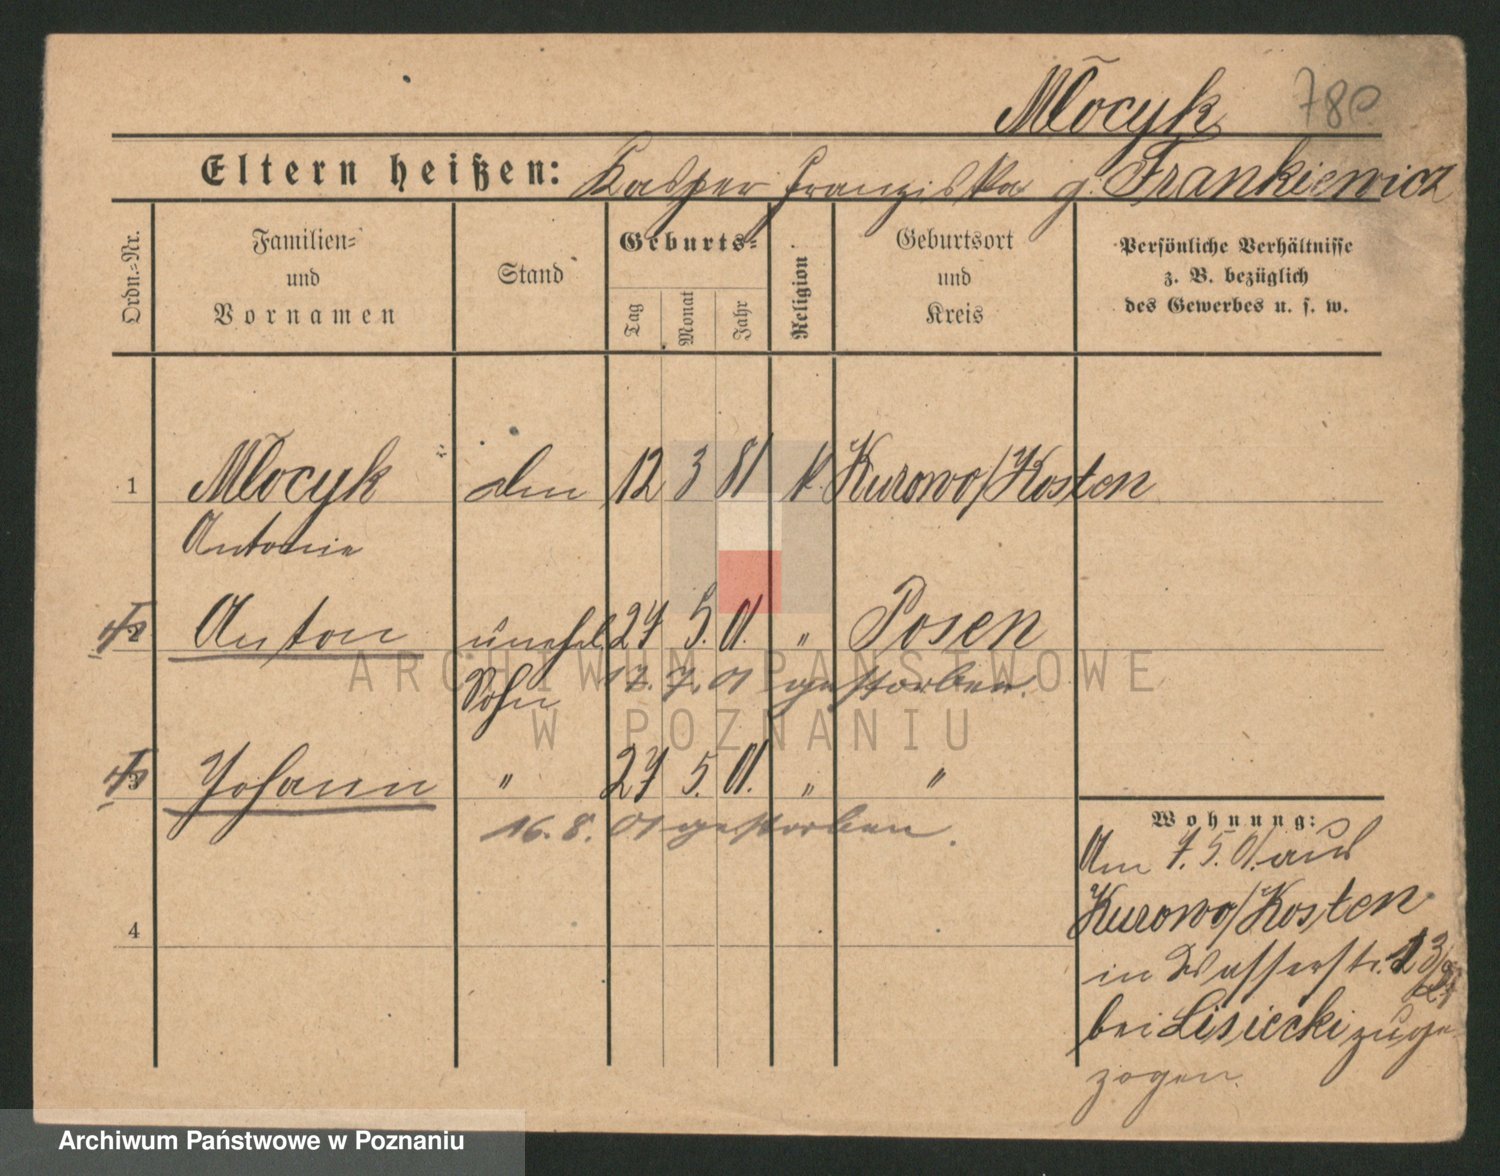 Młocyk 780
Eltern heißen: Kasper Franziska g. Frankiewicz
Ordn.=Nr.
Familien=
und
Vornamen
Stand
Geburts=
Tag
Monat
Jahr
Religion
Geburtsort
und
Kreis
Persönliche Verhältnisse
z. B. bezüglich
des Gewerbes u. s. w.
1 Młocyk 12 3 81 k. Kurowo/Kosten
Antonie
2 Anton unehel. 27 5. 01. " Posen
Sohn 17. 7. 01 gestorben.
3 Johann " 27 5. 01. " "
16. 8. 01 gestorben.
4
Wohnung:
Am 7. 5. 01. aus
Kurowo/Kosten
in Wasserstr.
bei Lisiecki zuge
zogen.
ARCHIWUM PAŃSTWOWE
W POZNANIU
Archiwum Państwowe w Poznaniu